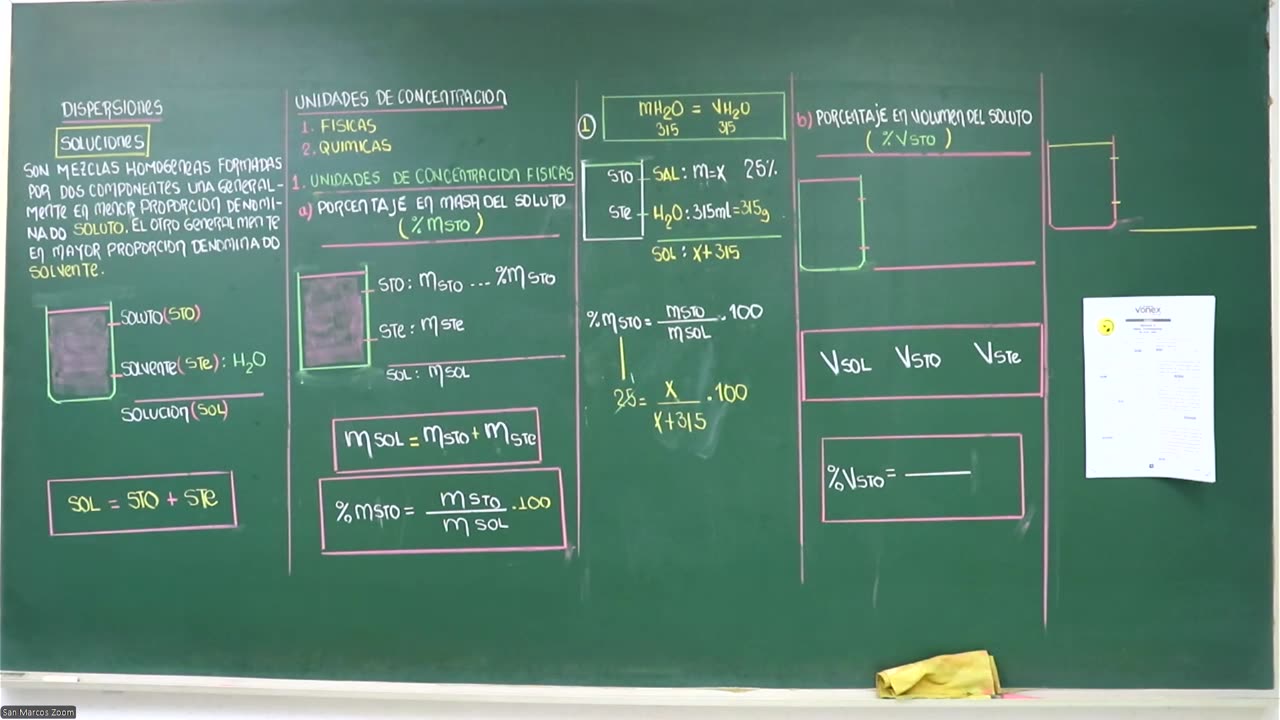 DISPERSIONES
SOLUCIONES
SON MEZCLAS HOMOGENEAS FORMADAS
POR DOS COMPONENTES UNA GENERAL-
MENTE EN MENOR PROPORCION DENOMI-
NADO SOLUTO. EL OTRO GENERALMENTE
EN MAYOR PROPORCION DENOMINADO
SOLVENTE.
SOLUTO (STO)
SOLVENTE (STe) : H₂O
SOLUCION (SOL)
SOL = STO + STe
UNIDADES DE CONCENTRACION
1. FISICAS
2. QUIMICAS
1. UNIDADES DE CONCENTRACION FISICAS
a) PORCENTAJE EN MASA DEL SOLUTO
(%mSTO)
STO : mSTO ... %mSTO
STe : mSTe
SOL : mSOL
mSOL = mSTO + mSTe
%mSTO = mSTO / mSOL . 100
1 mH₂O = VH₂O
315 315
STO SAL : m=x 25%
STe H₂O : 315ml = 315g
SOL : x+315
%mSTO = mSTO / mSOL . 100
25 = x / x+315 . 100
b) PORCENTAJE EN VOLUMEN DEL SOLUTO
(%VSTO)
VSOL VSTO VSTe
%VSTO =
vonex
San Marcos Zoom